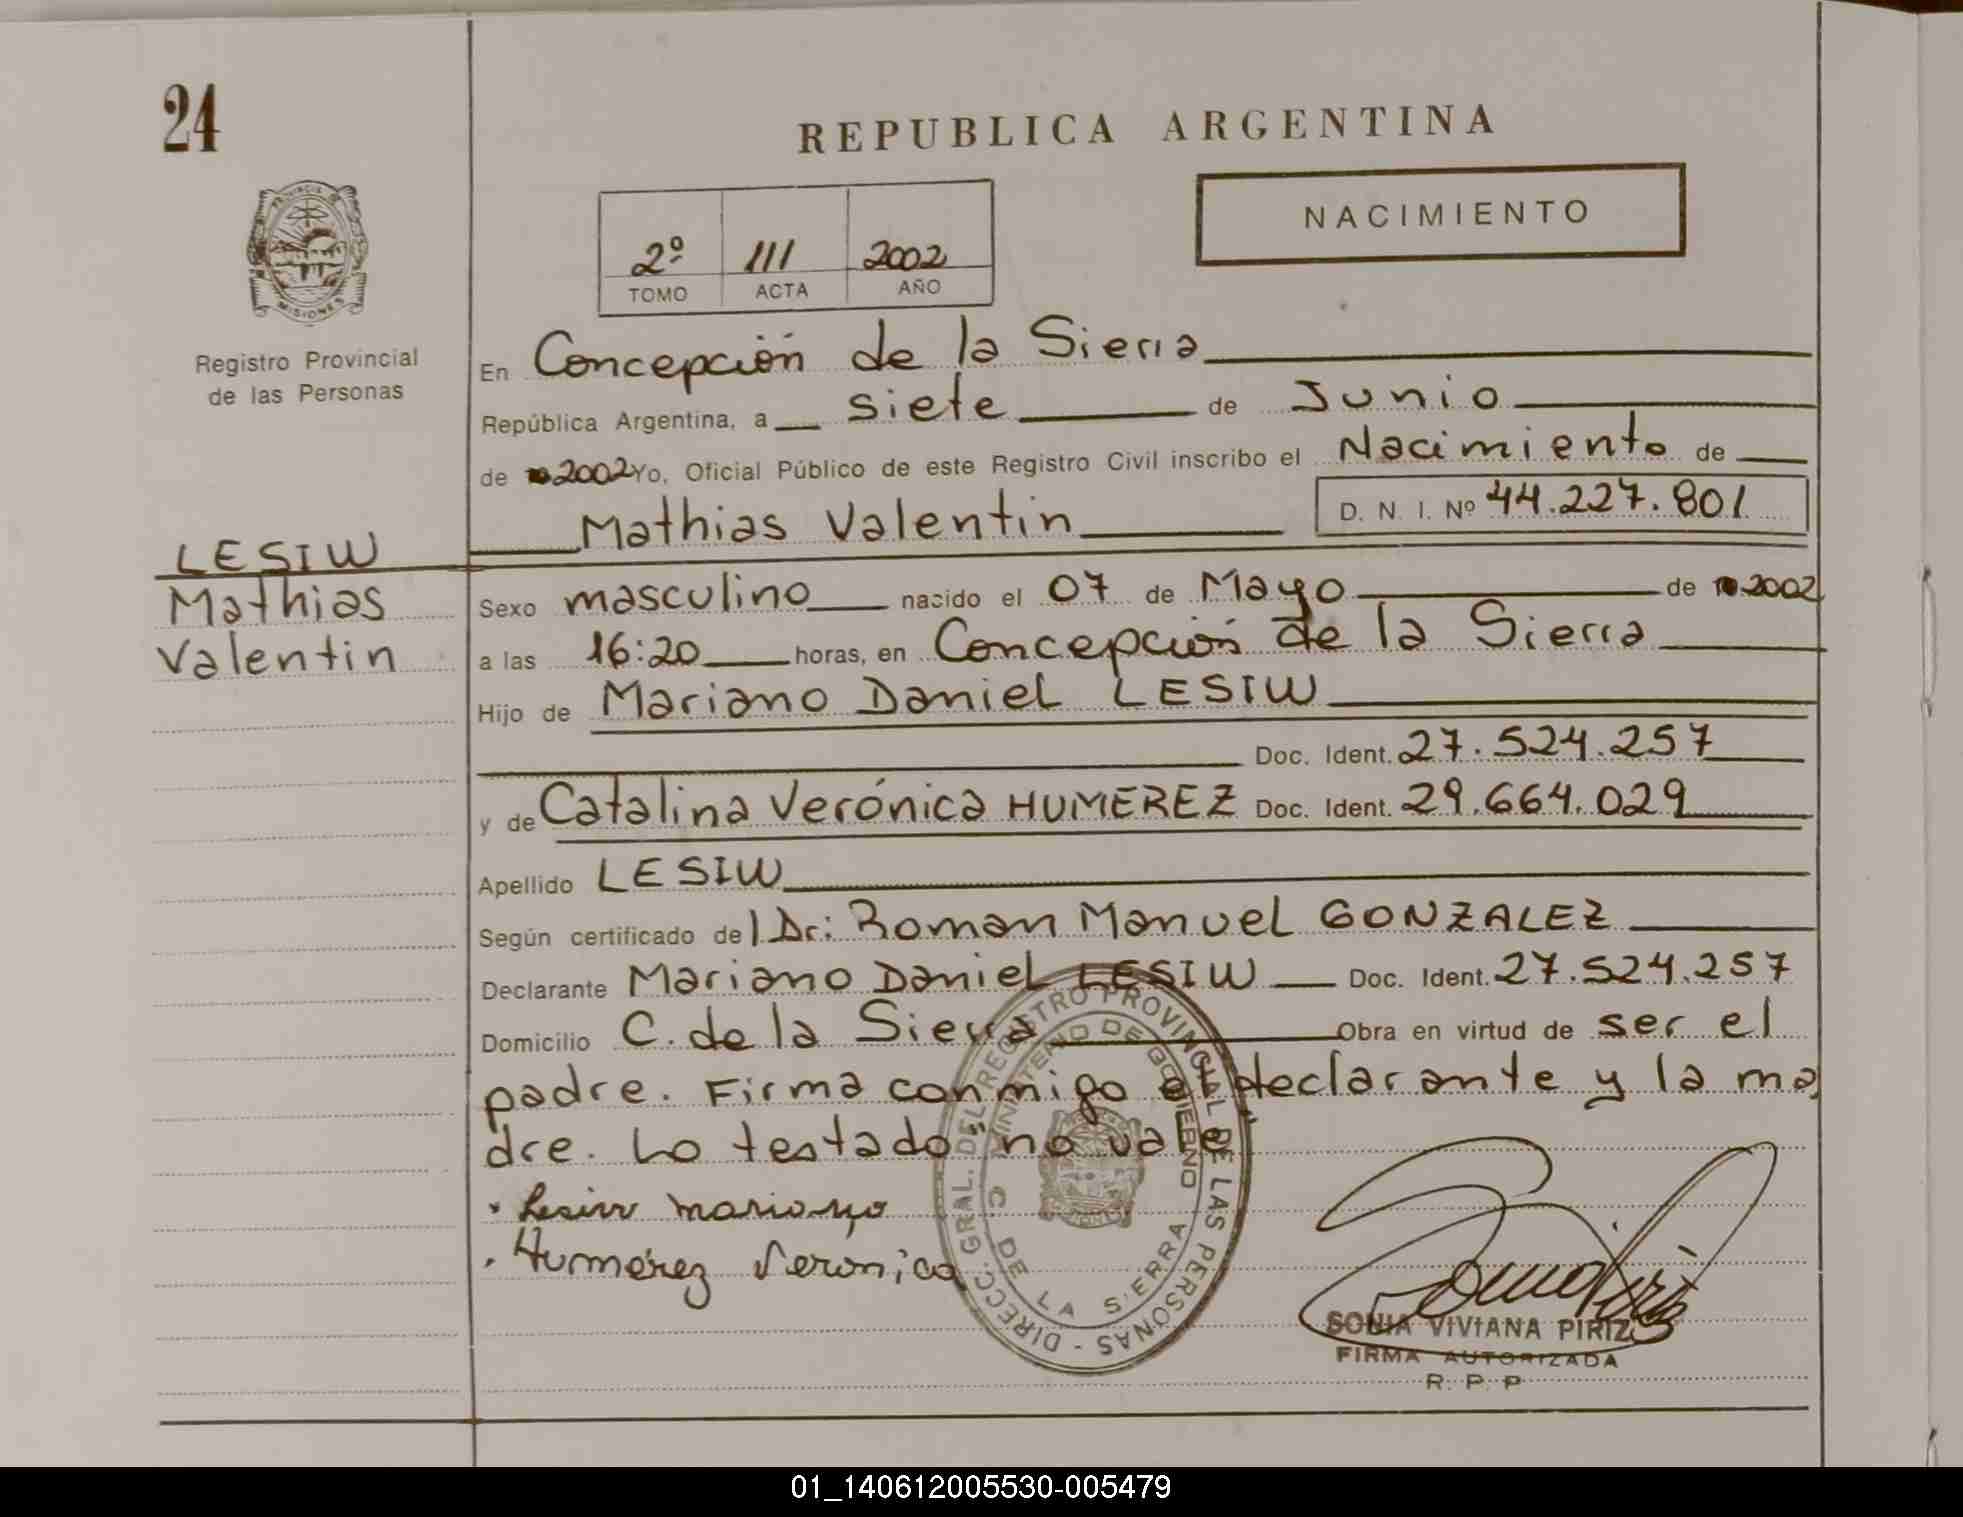 24
REPUBLICA ARGENTINA
NACIMIENTO
2º 111 2002
TOMO ACTA AÑO
PROVINCIA DE
MISIONES
Registro Provincial
de las Personas
En Concepción de la Sierra
República Argentina, a siete de Junio
de 2002 Yo, Oficial Público de este Registro Civil inscribo el Nacimiento de
Mathias Valentin D. N. I. Nº 44.227.801
LESIW
Mathias
Valentin
Sexo masculino nacido el 07 de Mayo de 2002
a las 16:20 horas, en Concepción de la Sierra
Hijo de Mariano Daniel LESIW
Doc. Ident. 27.524.257
y de Catalina Verónica HUMEREZ Doc. Ident. 29.664.029
Apellido LESIW
Según certificado del Dr: Roman Manuel GONZALEZ
Declarante Mariano Daniel LESIW Doc. Ident. 27.524.257
Domicilio C. de la Sierra Obra en virtud de ser el
padre. Firma conmigo el declarante y la ma
dre. Lo testado "no vale"
Lesiw Mariano
Humérez Veronica
DIRECC. GRAL. DEL REGISTRO PROVINCIAL DE LAS PERSONAS -
MINISTERIO DE GOBIERNO
C. DE LA SIERRA
SONIA VIVIANA PIRIZ
FIRMA AUTORIZADA
R. P. P
01_140612005530-005479